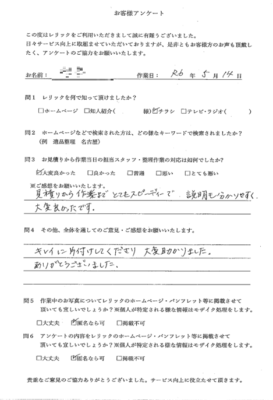 お客様アンケート
この度はレリックをご利用いただきまして誠に有難うございました。
日々サービス向上に取組ませていただいておりますが、是非ともお客様方のお声も頂戴し
たく、アンケートのご協力をお願いいたします。
お名前: 作業日: R6 年 5 月 14 日
問1 レリックを何で知って頂けましたか?
□ホームページ □知人紹介( 様) ☑チラシ □テレビ・ラジオ( )
問2 ホームページなどで検索された方は、どの様なキーワードで検索されましたか?
(例 遺品整理 名古屋)
問3 お見積りから作業当日の担当スタッフ・整理作業の対応は如何でしたか?
☑大変良かった □良かった □普通 □悪い □とても悪い
※ご感想をお願いいたします。
見積りから作業までとてもスピーディーで 説明も分かりやすく
大変良かったです。
問4 その他、全体を通してのご意見・ご感想をお願いいたします。
キレイに片付けしてくださり 大変助かりました。
ありがとうございました。
問5 作業中のお写真についてレリックのホームページ・パンフレット等に掲載させて
頂いても宜しいでしょうか?※個人が特定される様な情報はモザイク処理をします。
□大丈夫 ☑匿名なら可 □掲載不可
問6 アンケートの内容をレリックのホームページ・パンフレット等に掲載させて
頂いても宜しいでしょうか?※個人が特定される様な情報はモザイク処理をします。
□大丈夫 ☑匿名なら可 □掲載不可
貴重なご意見のご協力ありがとうございました。サービス向上に役立たせて頂きます。